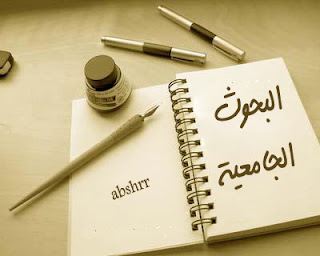 البحوث
الجامعية
abshrr